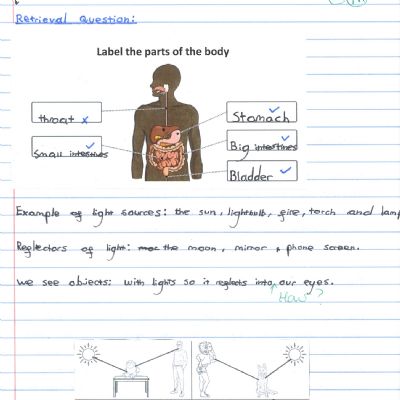 Retrieval Question:
Label the parts of the body
throat x
Stomach
Small intestines
Big intestines
Bladder
Example of light sources: the sun, lightbulb, fire, torch and lamp
Reflectors of light: the moon, mirror, phone screen.
we see objects: with lights so it reflects into our eyes.
How?